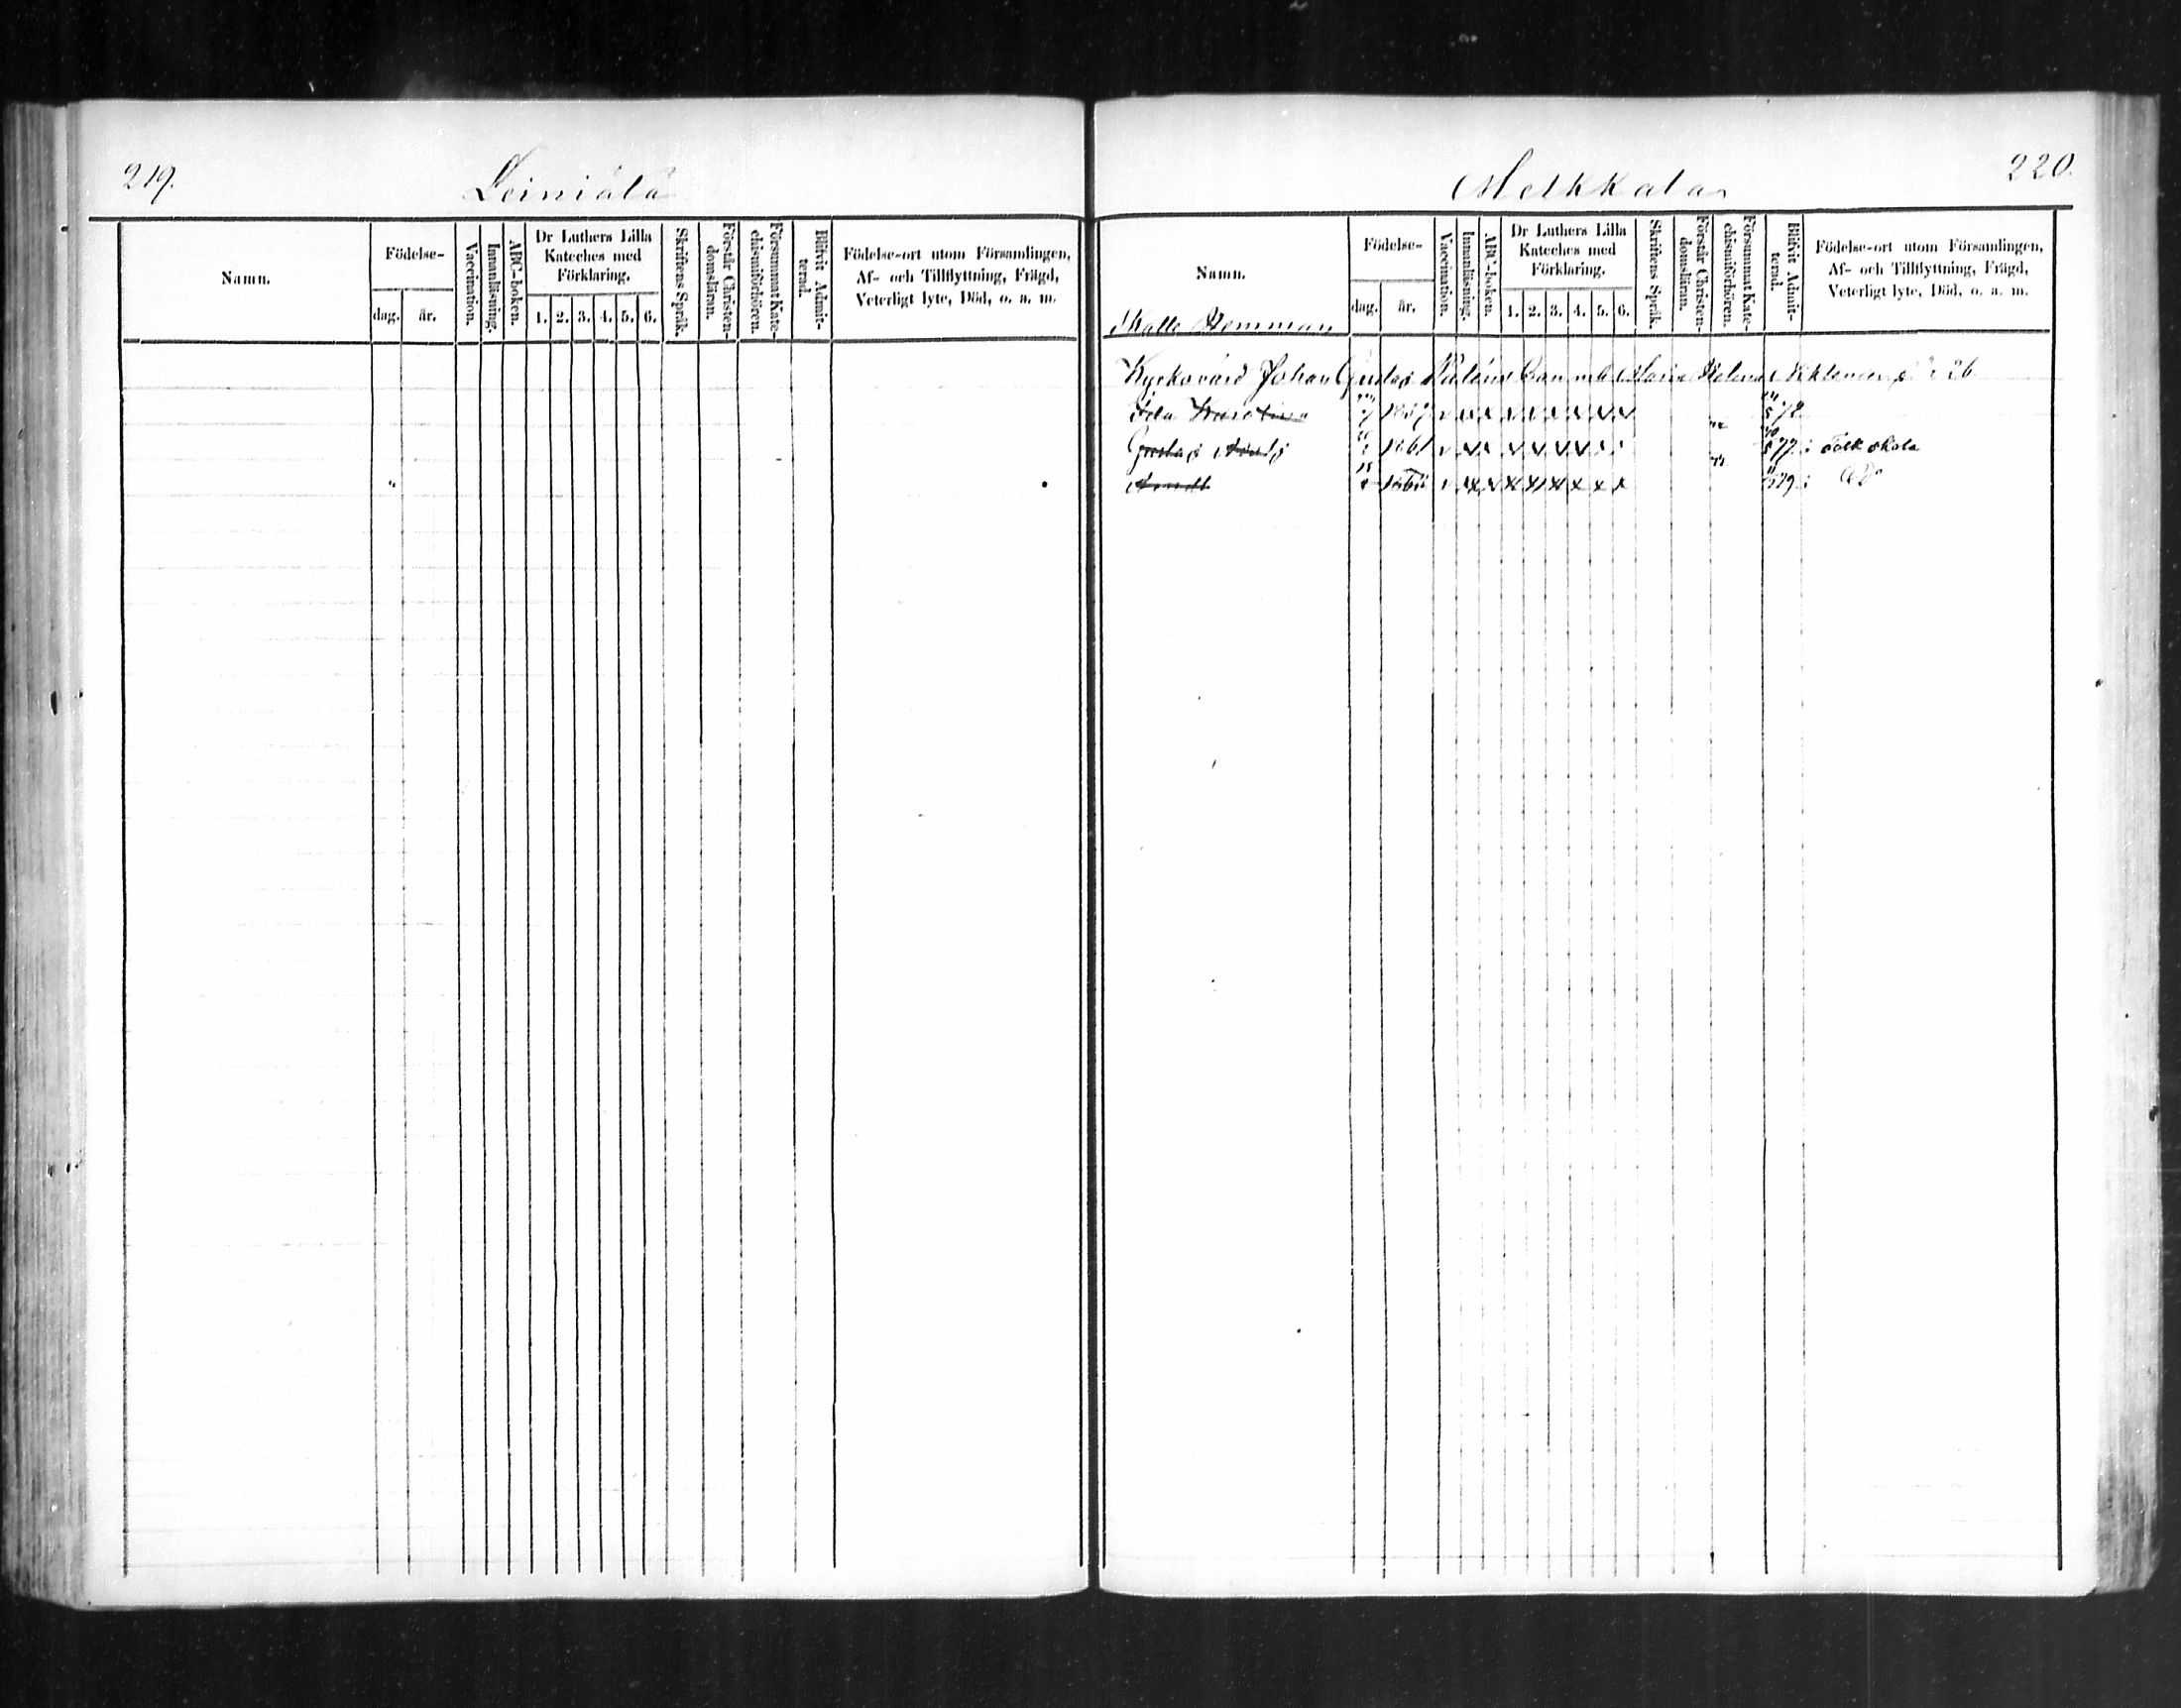 219.
Leiniälä
Namn.
Födelse-
dag.
år.
Vaccination.
Innanläsning.
ABC-boken.
Dr Luthers Lilla
Kateches med
Förklaring.
1. 2. 3. 4. 5. 6.
Skriftens Språk.
Förstår Christen-
domsläran.
Försummat Kate-
chismiförhören.
Blifvit Admit-
terad.
Födelse-ort utom Församlingen,
Af- och Tillflyttning, Frägd,
Veterligt lyte, Död, o. a. m.
220.
Melkkala
Namn.
Skatte Hemman
Födelse-
dag.
år.
Vaccination.
Innanläsning.
ABC-boken.
Dr Luthers Lilla
Kateches med
Förklaring.
1. 2. 3. 4. 5. 6.
Skriftens Språk.
Förstår Christen-
domsläran.
Försummat Kate-
chismiförhören.
Blifvit Admit-
terad.
Födelse-ort utom Församlingen,
Af- och Tillflyttning, Frägd,
Veterligt lyte, Död, o. a. m.
Johan Gustaf Barn m. Maria Helena 26
Ida Karolina 1857 72
Gustaf 1861 77 Folkskola
79